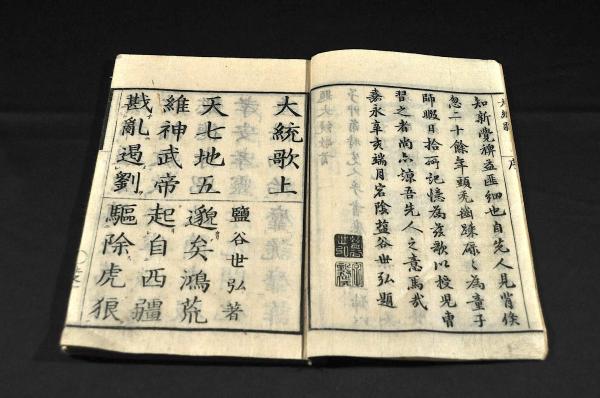 大統歌 序
知新覺裨益匪細也自先人見背倏
忽二十餘年頭禿齒踈碌〻爲童子
師暇日拾所記憶爲玆歌以授児曹
習之者尚亦諒吾先人之意焉哉
嘉永辛亥端月宕陰鹽谷世弘題
大統歌上
鹽谷世弘著
天七地五 邈矣鴻荒
維神武帝 起自西疆
戡亂遏劉 驅除虎狼